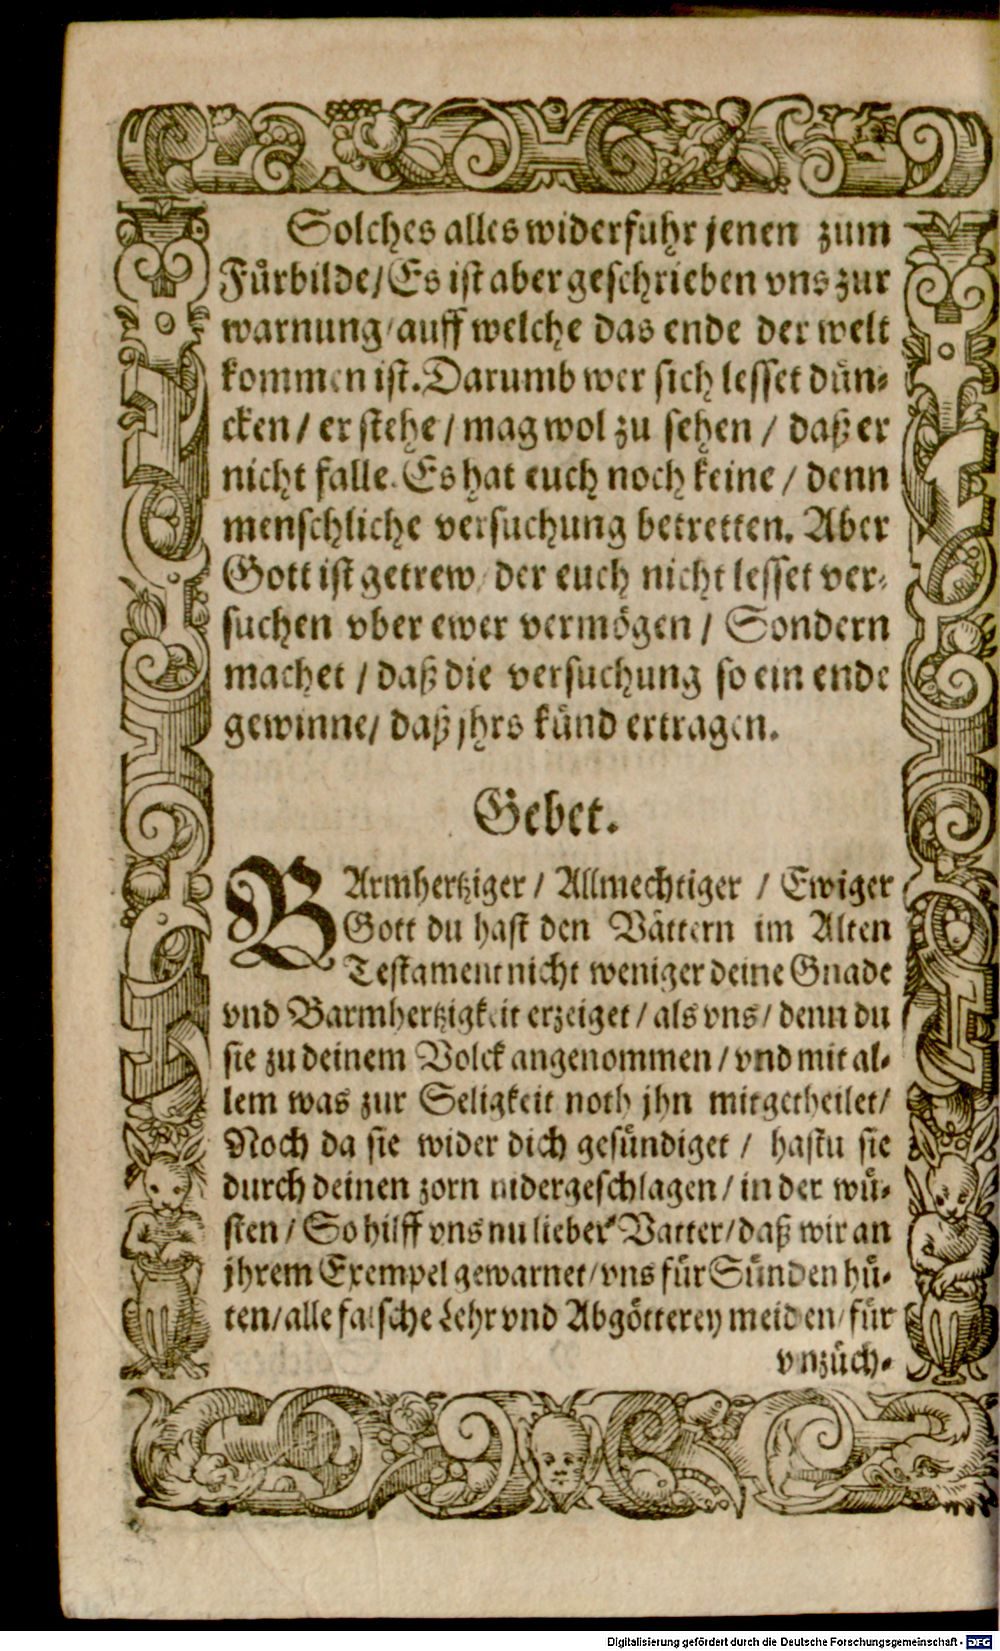 Solches alles widerfuhr jenen zum
Fürbilde/ Es ist aber geschrieben vns zur
warnung/ auff welche das ende der welt
kommen ist. Darumb wer sich lesset dün-
cken / er stehe / mag wol zu sehen / daß er
nicht falle. Es hat euch noch keine / denn
menschliche versuchung betretten. Aber
Gott ist getrew/ der euch nicht lesset ver-
suchen vber ewer vermögen / Sondern
machet / daß die versuchung so ein ende
gewinne/ daß jhrs künd ertragen.
Gebet.
BArmhertziger / Allmechtiger / Ewiger
Gott du hast den Vättern im Alten
Testament nicht weniger deine Gnade
vnd Barmhertzigkeit erzeiget / als vns / denn du
sie zu deinem Volck angenommen / vnd mit al-
lem was zur Seligkeit noth jhn mitgetheilet/
Noch da sie wider dich gesündiget / hastu sie
durch deinen zorn nidergeschlagen / in der wü-
sten / So hilff vns nu lieber Vatter/ daß wir an
jhrem Exempel gewarnet/ vns für Sünden hü-
ten/ alle falsche Lehr vnd Abgötterey meiden/ für
vnzüch-
Digitalisierung gefördert durch die Deutsche Forschungsgemeinschaft - DFG